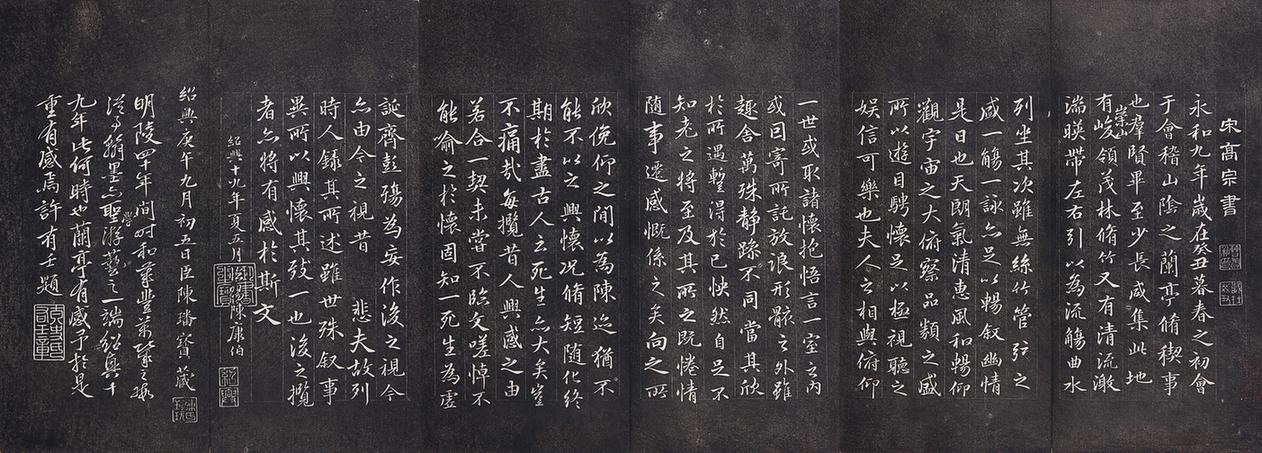 宋高宗書
永和九年歲在癸丑暮春之初會
于會稽山陰之蘭亭脩稧事
也羣賢畢至少長咸集此地
有崇山峻領茂林脩竹又有清流激
湍暎帶左右引以為流觴曲水
列坐其次雖無絲竹管弦之
盛一觴一詠亦足以暢叙幽情
是日也天朗氣清惠風和暢仰
觀宇宙之大俯察品類之盛
所以遊目騁懷足以極視聽之
娛信可樂也夫人之相與俯仰
一世或取諸懷抱悟言一室之內
或因寄所託放浪形骸之外雖
趣舍萬殊靜躁不同當其欣
於所遇暫得於己怏然自足不
知老之將至及其所之既惓情
隨事遷感慨係之矣向之所
欣俛仰之間以為陳迹猶不
能不以之興懷況脩短隨化終
期於盡古人云死生亦大矣豈
不痛哉每攬昔人興感之由
若合一契未嘗不臨文嗟悼不
能喻之於懷固知一死生為虛
誕齊彭殤為妄作後之視今
亦由今之視昔 悲夫故列
時人錄其所述雖世殊叙事
異所以興懷其致一也後之攬
者亦將有感於斯文
紹興十九年夏五月 陳康伯
紹興庚午九月初五日臣陳璠寶藏
明陵四年間时和
翰墨亦聖學游藝之一端紹興十
九年此何時也蘭亭有感予於是
重有感焉許有壬題